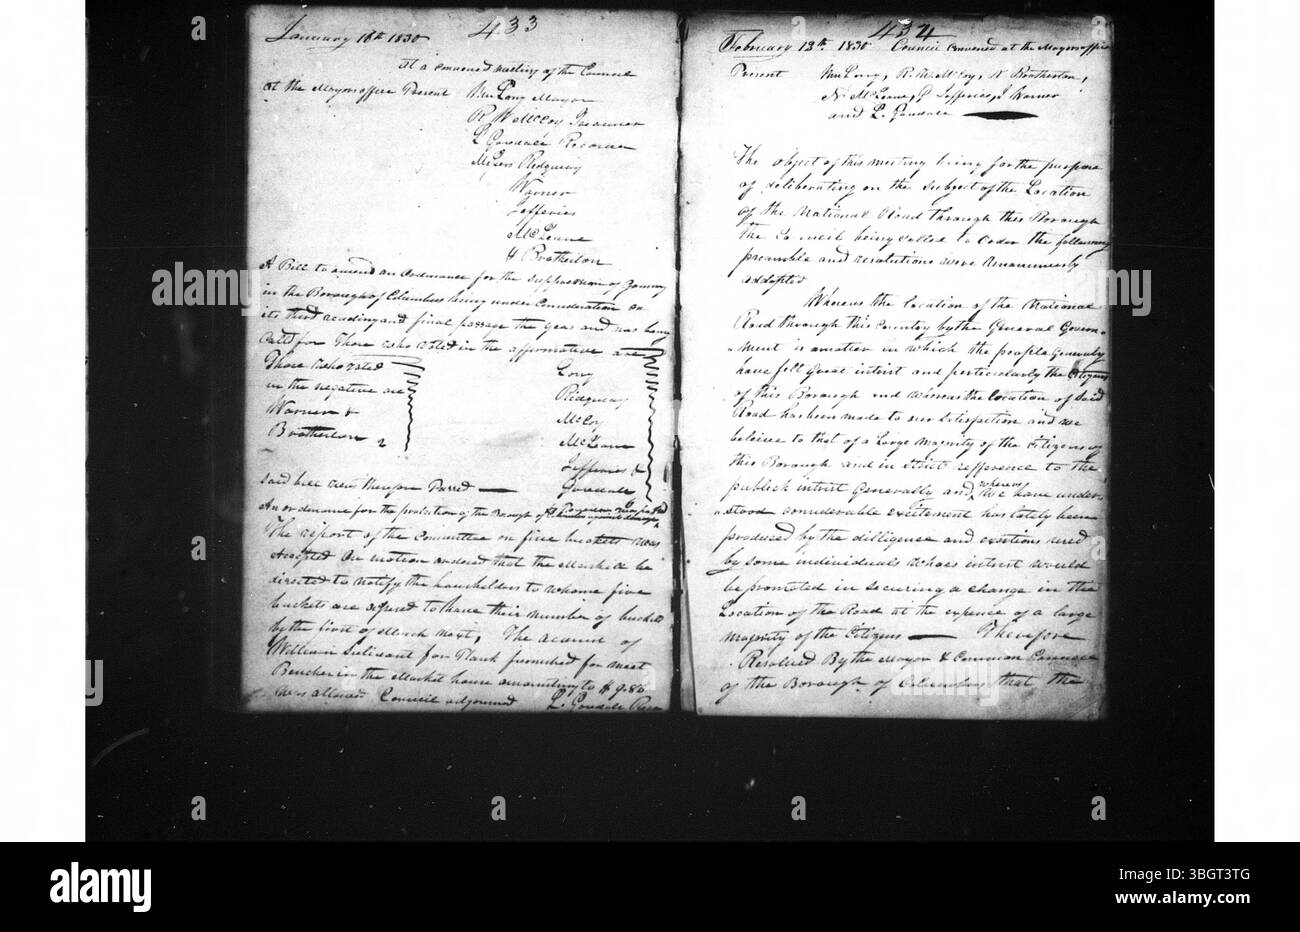 433
January 18th 1830
At a convened meeting of the Council
at the Mayors office Present Wm Long Mayor
R W McCoy Treasurer
L Goodale Recorder
Messrs Ridgway
Warner
Jefferies
McLeane
& Brotherton
A Bill to amend an Ordinance for the suppression of
in the Borough of Columbus being under Consideration on
its third reading and final passage the yeas and nays being
called for Those who voted in the affirmative are
Those who voted
in the negative are
Warner &
Brotherton 2
Long
Ridgway
McCoy
McLeane
Jefferies &
Goodale 6
said bill was therefore Passed
An ordinance for the protection of the Borough of
The report of the Committee on fire buckets was
accepted On motion ordered that the Marshal be
directed to notify the householders to whome fire
buckets are assigned to have their number of buckets
by the first of March next, The account of
William Sulivant for Plank furnished for meet
Benches in the Market house amounting to $ 9.80
was allowed Council adjourned L. Goodale Recr
434
February 12th 1830 Council convened at the Mayors office
Present Wm Long, R. W. McCoy, N Brotherton,
N McLeane, P Jefferies, J Warner
and L. Goodale
The object of this meeting being for the purpose
of deliberating on the subject of the Location
of the National Road through this Borough
The Council being called to Order the following
preamble and resolutions were unanimously
addopted
Whereas the location of the National
Road through this country by the General Govern-
-ment is a matter in which the people Generaly
have felt Great intrest and particularly the Citizens
of this Borough and whereas the location of said
Road has been made to our satisfaction and we
beleive to that of a large majority of the Citizens of
this Borough and in strict refference to the
publick intrest Generally and, whereas We have under-
-stood considerable excitement has lately been
produced by the dilligence and exertions used
by some individuals whoes intrest would
be promoted in securing a change in the
Location of the Road at the expence of a large
majority of the Citizens Therefore
Resolved By the Mayor & Common Council
of the Borough of Columbus that the
alamy
Image ID: 3BGT3TG
www.alamy.com